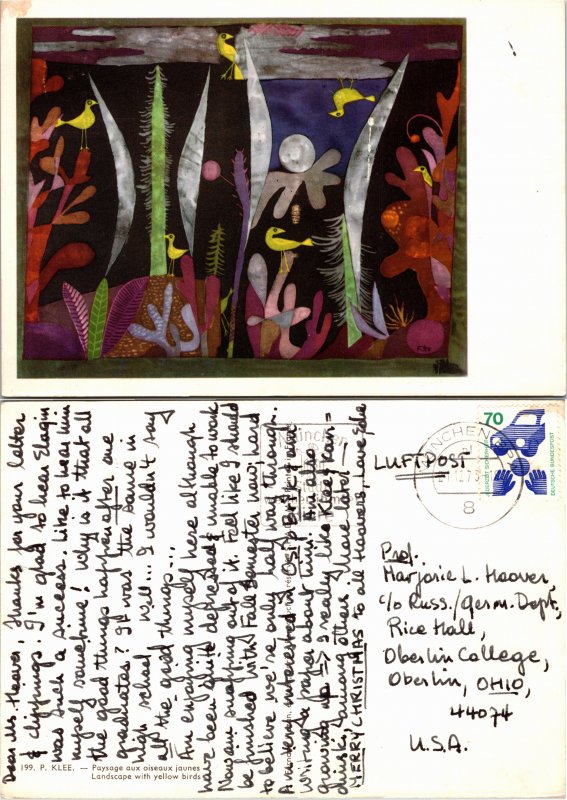 Dear Mrs. Hoover, Thanks for your letter
& clippings. I'm glad to hear Elagin
was such a success. Like to hear him
myself sometime! Why is it that all
the good things happen after one
graduates? It was the same in
high school. Well... I wouldn't say
all the good things...
Am enjoying myself here although
have been quite depressed & unable to work
Now am snapping out of it. Feel like I should
be finished with Fall Semester now, hard
to believe we're only half way through.
Am very interested in OSIP BRIK and
writing a paper about him. Am also
growing up => I really like Klee & Kan=
dinski, among others. More later —
MERRY CHRISTMAS to all Hoovers. Love,
199. P. KLEE. — Paysage aux oiseaux jaunes
Landscape with yellow birds
München
MÜNCHEN
8
70
DEUTSCHE BUNDESPOST
LUFTPOST
Prof.
Marjorie L. Hoover
c/o Russ./Germ. Dept,
Rice Hall,
Oberlin College,
Oberlin, OHIO,
44074
U.S.A.